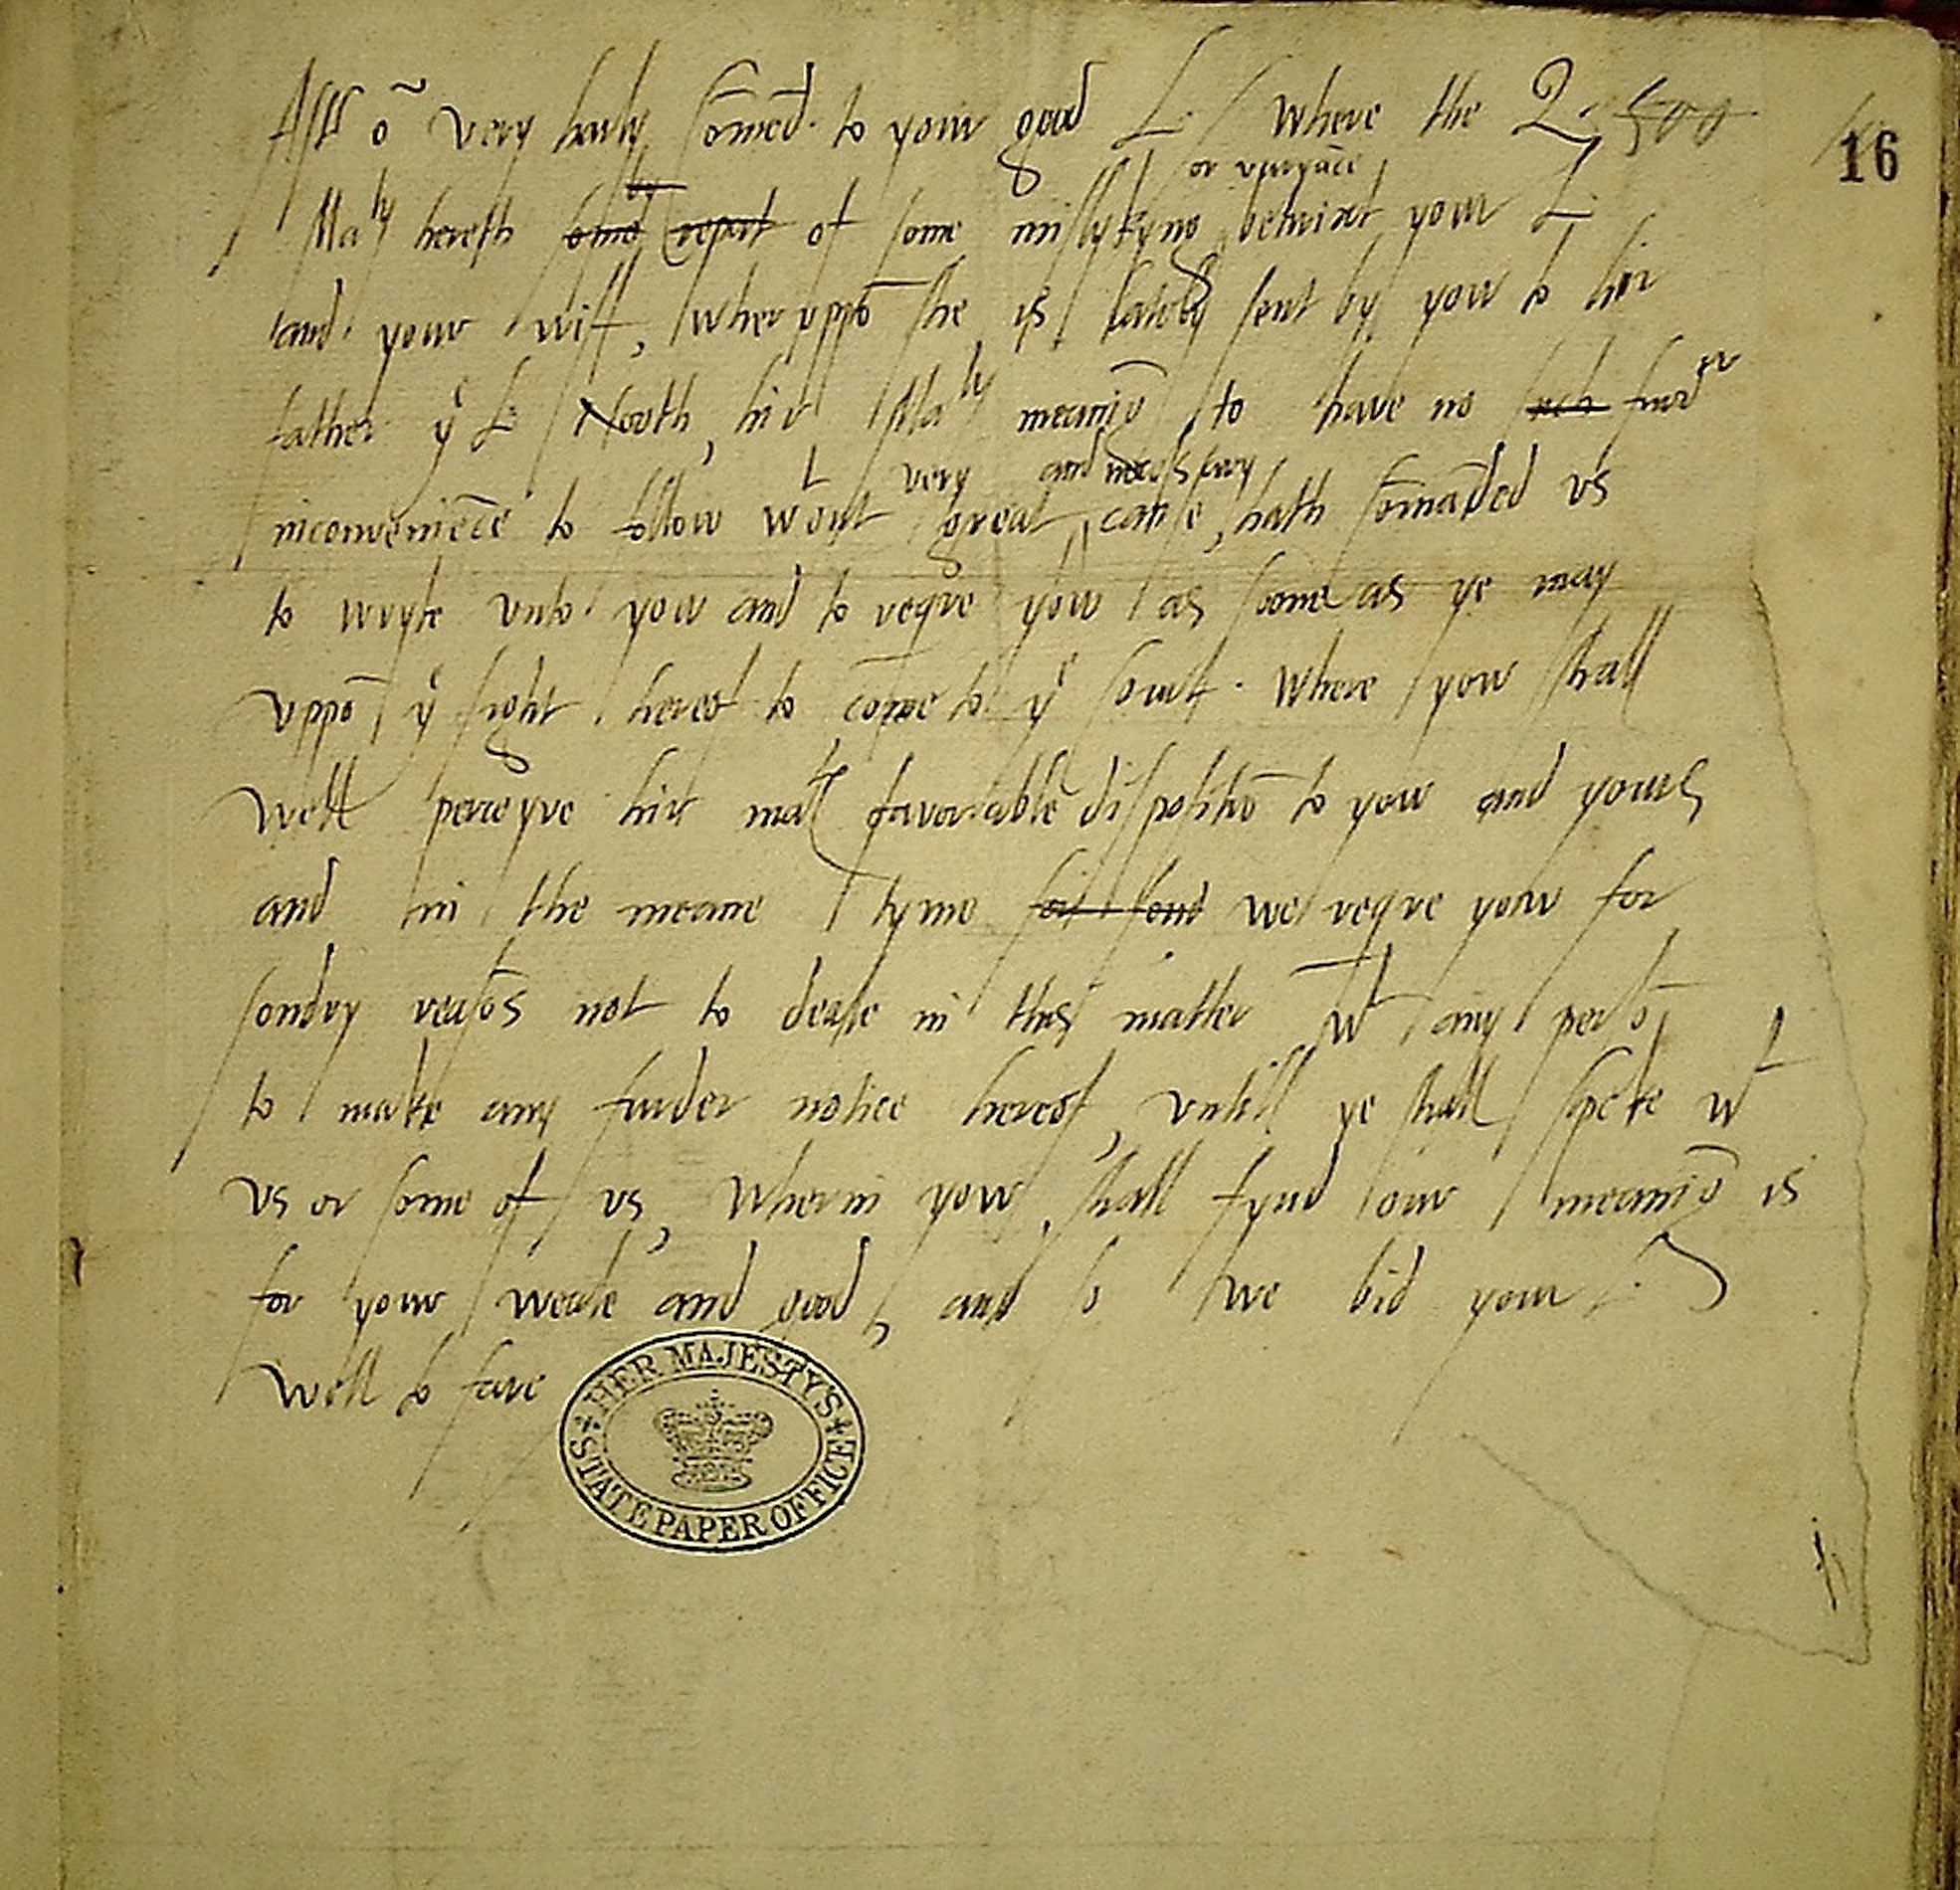 Aft[er] õ very harty cõmend. to your good L. where the Q. 500
16
or variãce
by
Maty hereth some report of some mislykyng betwixt your L.
and your wiff, wheruppõ she is lately sent by yow to hir
father ye L. North, hir Maty meanĩg to have no such furdr
very and necessary
inconveniẽce to follow wtout great cause, hath cõmãded vs
to wryte vnto yow and to reqre yow as soone as ye may
vppõ ye sight hereof to come to ye Court. Where yow shall
well perceyve hir mats favorable dispositiõ to yow and yours
and in the meane tyme for some we reqre yow for
sondry reasõs not to deale in this matter wt any persõ
to make any furder notice hereof, vntill ye shall speke wt
vs or some of vs, wherin yow shall fynd our meanĩg is
for your weale and good, and so we bid your L.
well to fare
HER MAJESTY'S
STATE PAPER OFFICE